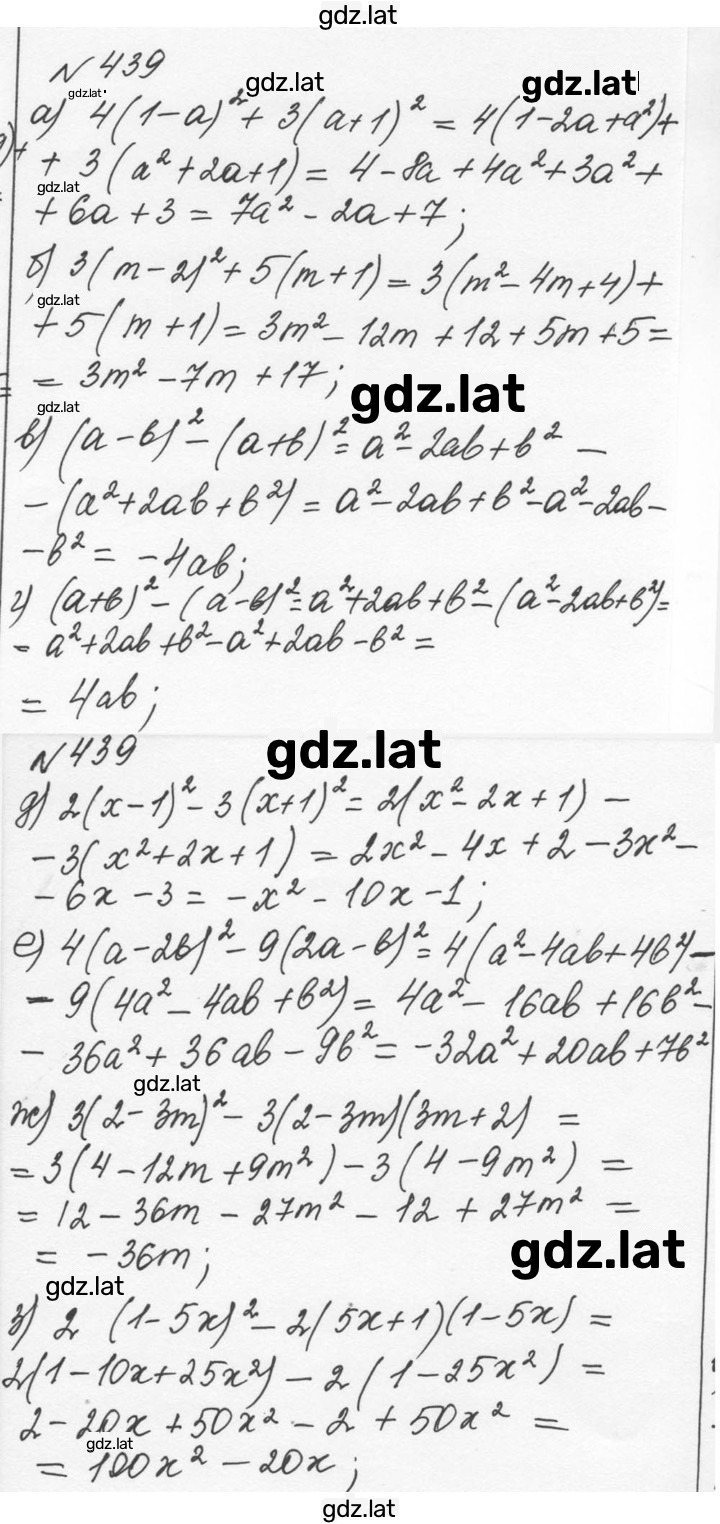 gdz.lat
№ 439
gdz.lat gdz.lat gdz.lat
а) 4(1-a)² + 3(a+1)² = 4(1-2a+a²)+
+ 3(a²+2a+1) = 4-8a+4a²+3a²+
gdz.lat
+6a+3 = 7a²-2a+7;
б) 3(m-2)²+5(m+1)=3(m²-4m+4)+
gdz.lat
+5(m+1) = 3m²-12m+12+5m+5=
= 3m²-7m+17;
gdz.lat
gdz.lat
в) (a-b)²-(a+b)²=a²-2ab+b² -
-(a²+2ab+b²) = a²-2ab+b²-a²-2ab-
-b² = -4ab;
г) (a+b)²-(a-b)²=a²+2ab+b²-(a²-2ab+b²)=
= a²+2ab+b²-a²+2ab-b² =
= 4ab;
№ 439
gdz.lat
д) 2(x-1)²-3(x+1)²=2(x²-2x+1) -
-3(x²+2x+1) = 2x²-4x+2-3x²-
-6x-3 = -x²-10x-1;
е) 4(a-2b)²-9(2a-b)²=4(a²-4ab+4b²)-
-9(4a²-4ab+b²) = 4a²-16ab+16b²-
- 36a²+36ab-9b²=-32a²+20ab+7b²
gdz.lat
ж) 3(2-3m)²-3(2-3m)(3m+2) =
=3(4-12m+9m²)-3(4-9m²) =
= 12-36m-27m²-12+27m² =
= -36m;
gdz.lat
gdz.lat
з) 2 (1-5x)²-2(5x+1)(1-5x) =
2(1-10x+25x²)-2(1-25x²) =
2-20x+50x²-2+50x² =
gdz.lat
= 100x²-20x;
gdz.lat